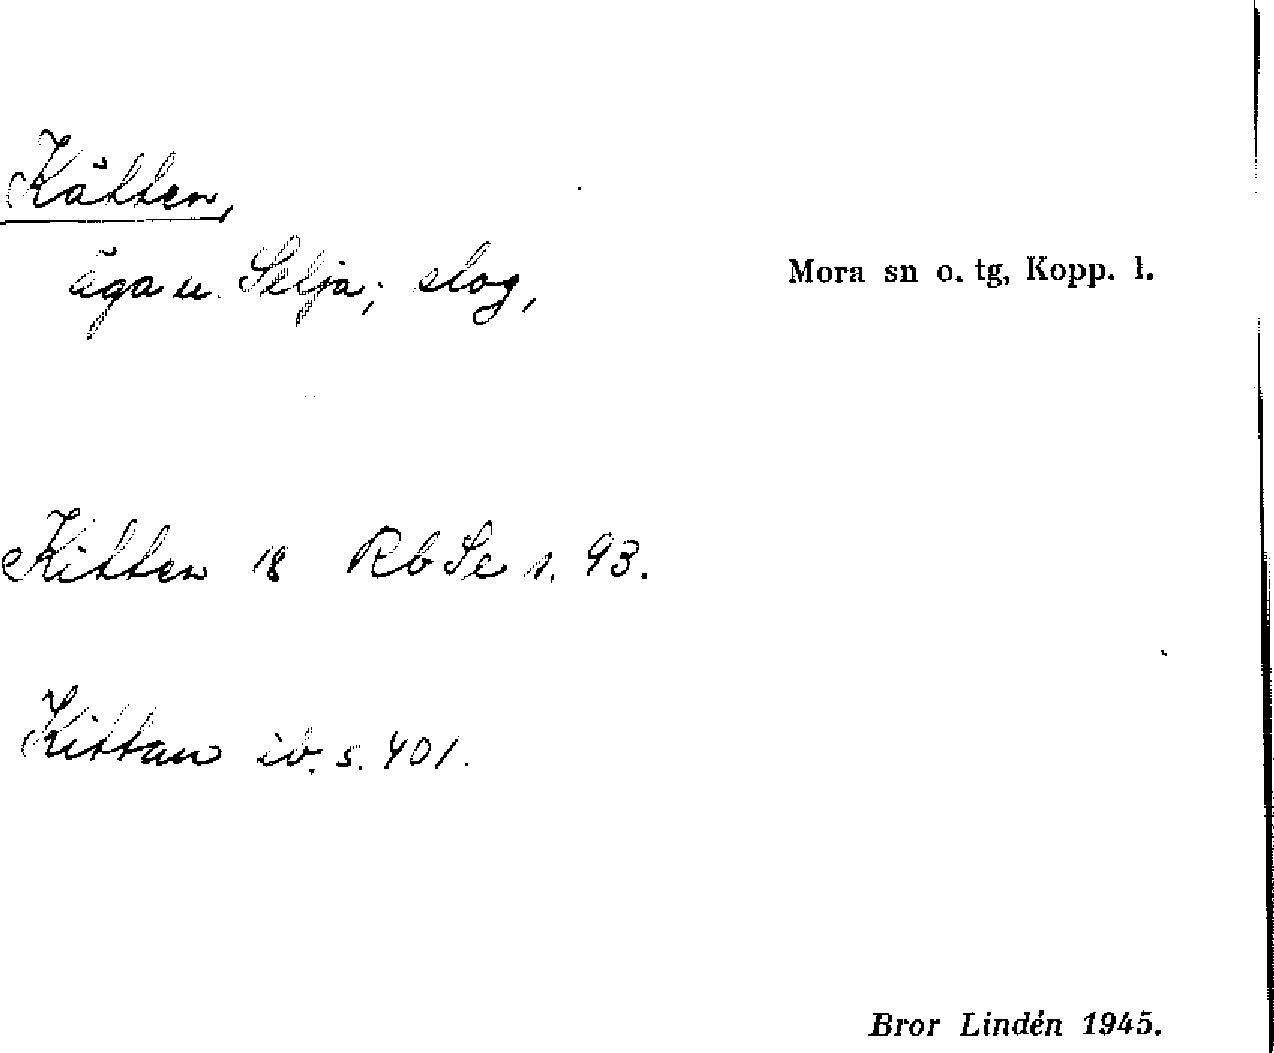 Kätten,
äga u. Selja; slog,
Mora sn o. tg, Kopp. l.
Kitten 18 Rb Se s. 93.
Kittan ib. s. 401.
Bror Lindén 1945.